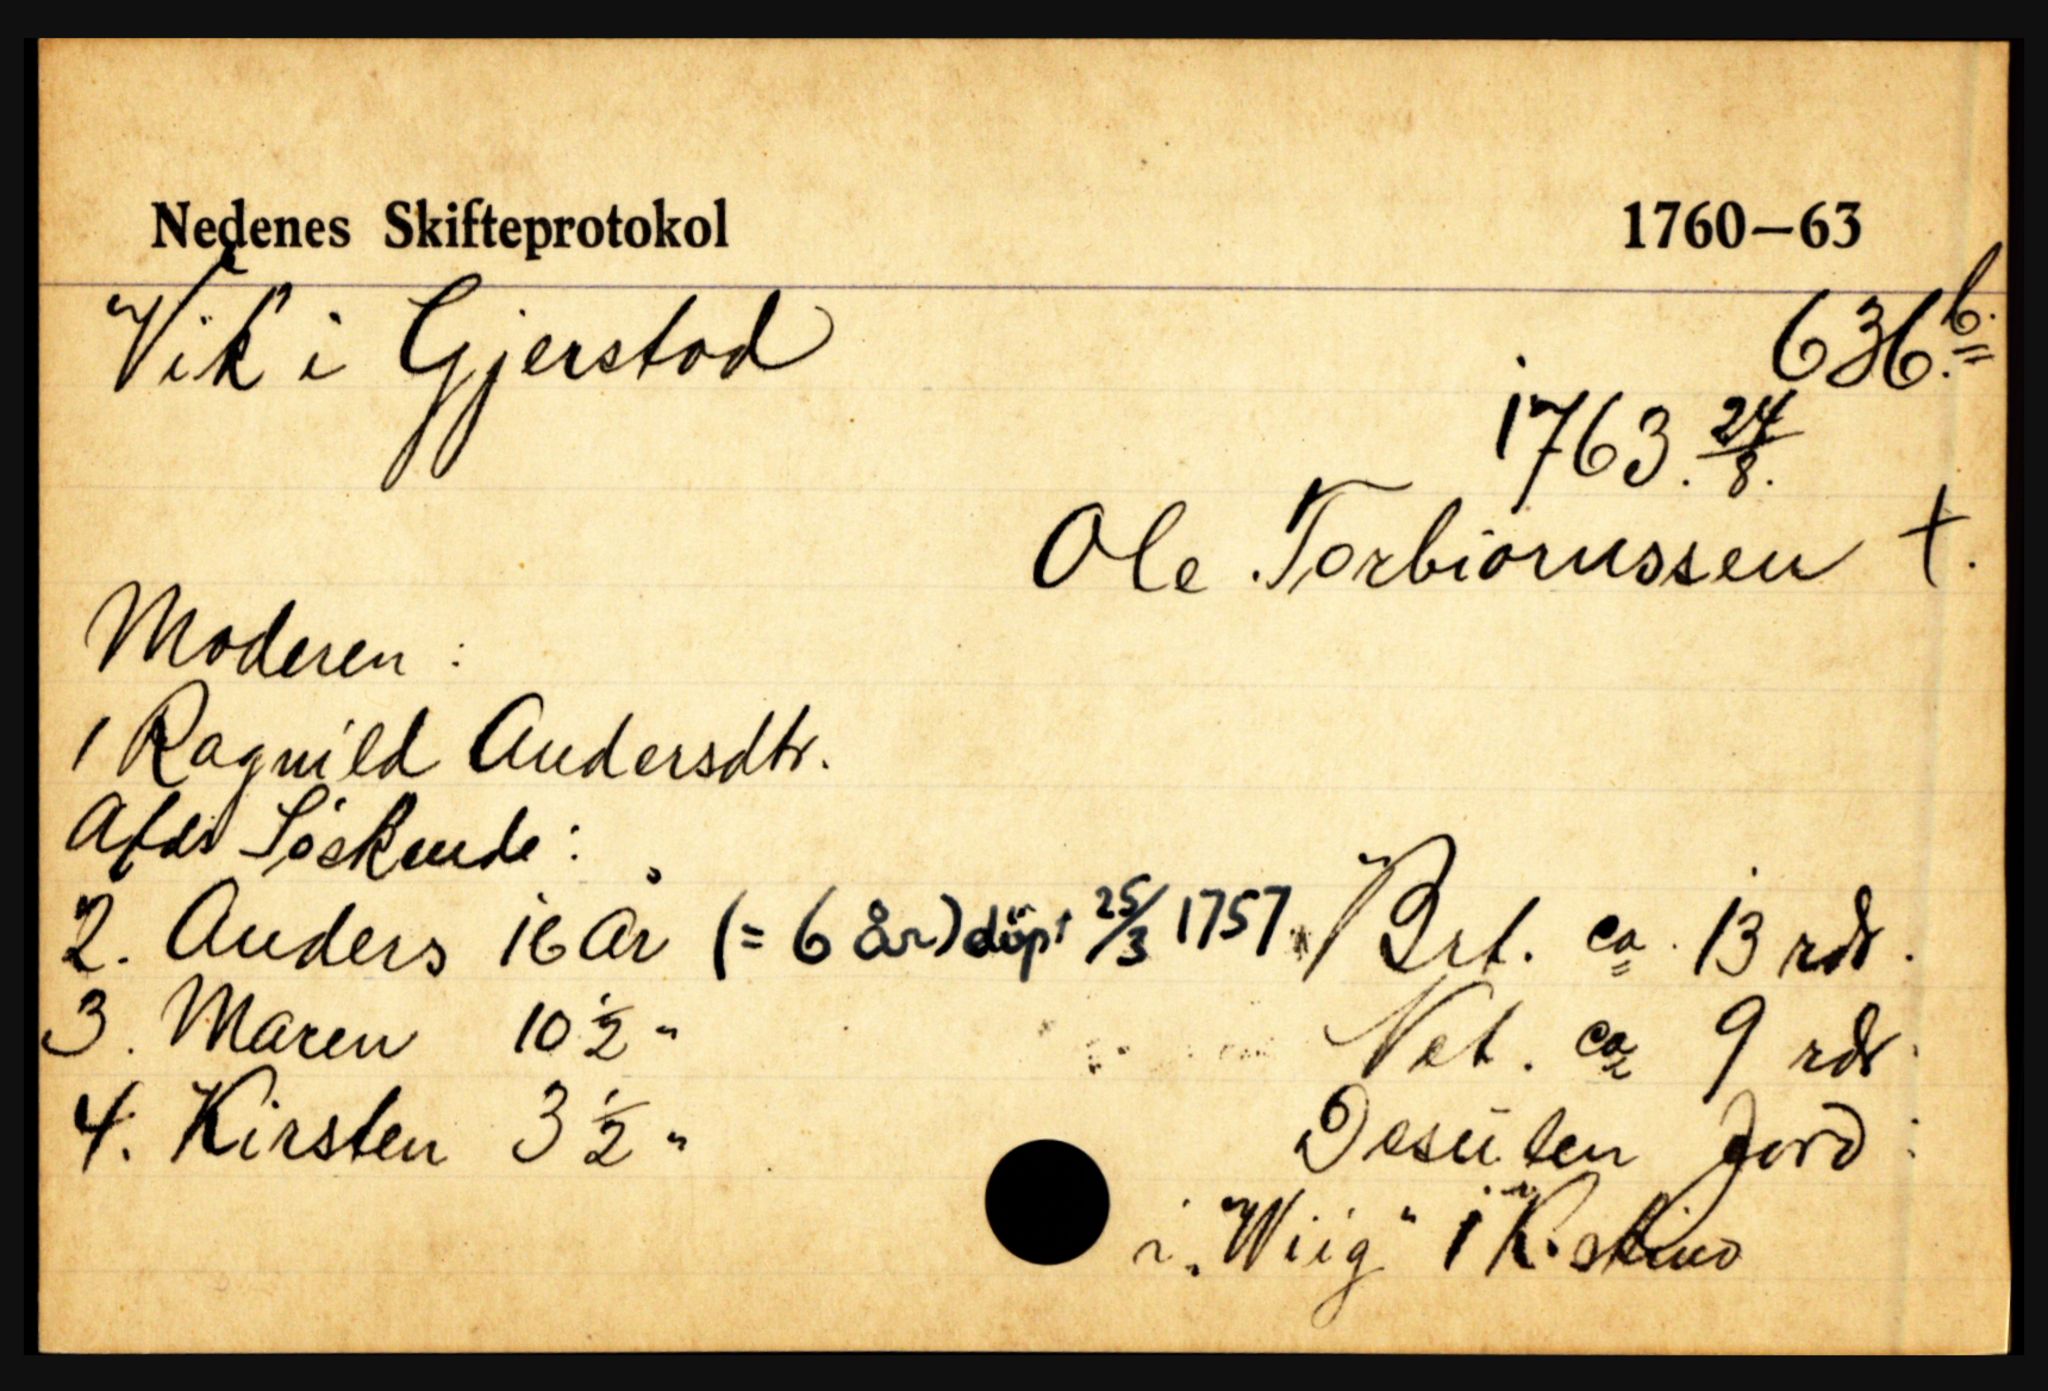 Nedenes Skifteprotokol 1760–63
Vik i Gjerstad 636 b.
1763. 24/8.
Ole Torbiørnssen †.
Moderen:
1 Ragnild Andersdtr.
Afds Söskende:
2. Anders 16 År (= 6 år) döpt 25/3 1757 Brt. ca. 13 rdr.
3. Maren 10 1/2 " Net. ca 9 rdr.
4. Kirsten 3 1/2 " Desüten Jord:
i „Wiig" 1 K. skind